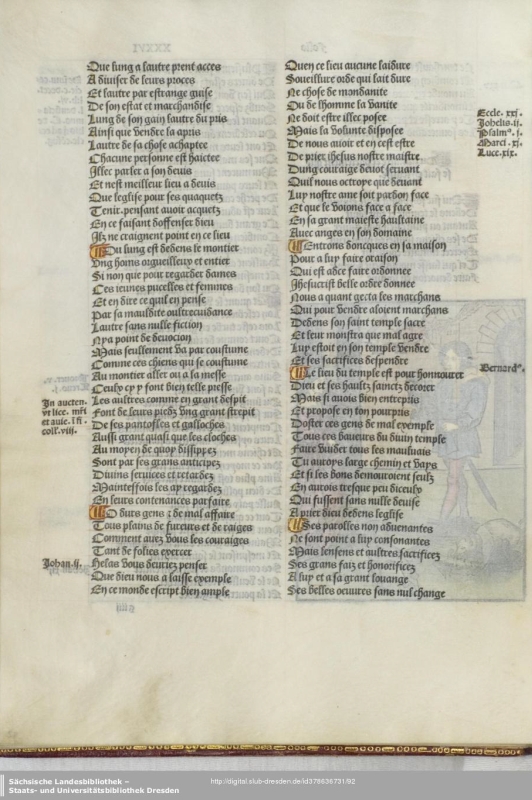 Que lung a lautre prent acces
A diviser de leurs proces
Et lautre par estrange guise
De son estat et marchandise
Lung de son gain lautre du pris
Ainsi que vendre la apris
Lautre de sa chose achaptee
Chacune personne est haictee
Illec parler a son devis
Et nest meilleur lieu a devis
Que leglise pour ses quaquetz
Tenir. pensant avoir acquetz
En ce faisant doffenser dieu
Ilz ne craignent point en ce lieu
Du lung est dedens le monstier
Ung homs orgueilleux et entier
Si non que pour regarder dames
Ces ieunes pucelles et femmes
Et en dire ce quil en pense
Par sa mauldite oultrecuidance
Lautre sans nulle fiction
Nya point de devocion
Mais seullement va par coustume
Comme ces chiens qui se coustume
Au monstier aller ou a la messe
Ceulx cy y font bien telle presse
Les aultres comme en grant despit
Font de leurs piedz ung grant strepit
De ses pantofles et galloches
Aussi grant quasi que les cloches
Au moyen de quoy dissippez
Sont par ses grans anticipez
Divins services et retardez
Maintessfois les ay regardez
En leurs contenances parfaire
O durs gens z de mal affaire
Tous plains de fureurs et de raiges
Comment avez vous les couraiges
Tant de folies exercer
Helas vous deuriez penser
Que dieu nous a laisse exemple
En ce monde escript bien ample
In aucten.
ut lice. mri
et avie. §fi.
coll. viii.
Johan. ii.
Quen ce lieu aucune laidure
Soueillure orde qui lait dure
Ne chose de mondanite
Ou de lhomme la vanite
Ne doit estre illec posee
Mais la volunte disposee
De nous avoir et en cest estre
De prier ihesus nostre maistre
Dung couraige devot servant
Quil nous octroye que devant
Luy nostre ame soit pardon face
Et que le voions face a face
En sa grant maieste haultaine
Avec anges en son domaine
Entrons doncques en sa maison
Pour a luy faire oraison
Qui est adce faire ordonnee
Jhesucrist belle ordre donnee
Nous a quant gecta les marchans
Qui pour vendre aloient marchans
Dedens son saint temple sacre
Et leur monstra que mal agre
Luy estoit en son temple vendre
Et ses sacrifices despendre
Le lieu du temple est pour honnourer
Dieu et ses haultz sainctz decorer
Mais si avois bien entrepris
Et propose en ton pourpris
Doster ces gens de mal exemple
Tous ces baveurs du divin temple
Faire vuider tous les maulvais
Tu auroys large chemin et vays
Et si les bons demouroient seulz
En aurois tresque peu diceulx
Qui fussent sans nulle devise
A prier dieu dedens leglise
Ses parolles non advenantes
Ne sont point a luy consonantes
Mais lensens et aultres sacrificez
Ses grans faiz et honorificez
A luy et a sa grant louange
Ses belles oeuvres sans nul change
Eccle. xxi.
Johelis. ii.
Psalm⁹. i.
Marci. xi.
Luce. xix.
Bernard⁹.
Sächsische Landesbibliothek –
Staats- und Universitätsbibliothek Dresden
http://digital.slub-dresden.de/id378636731/92